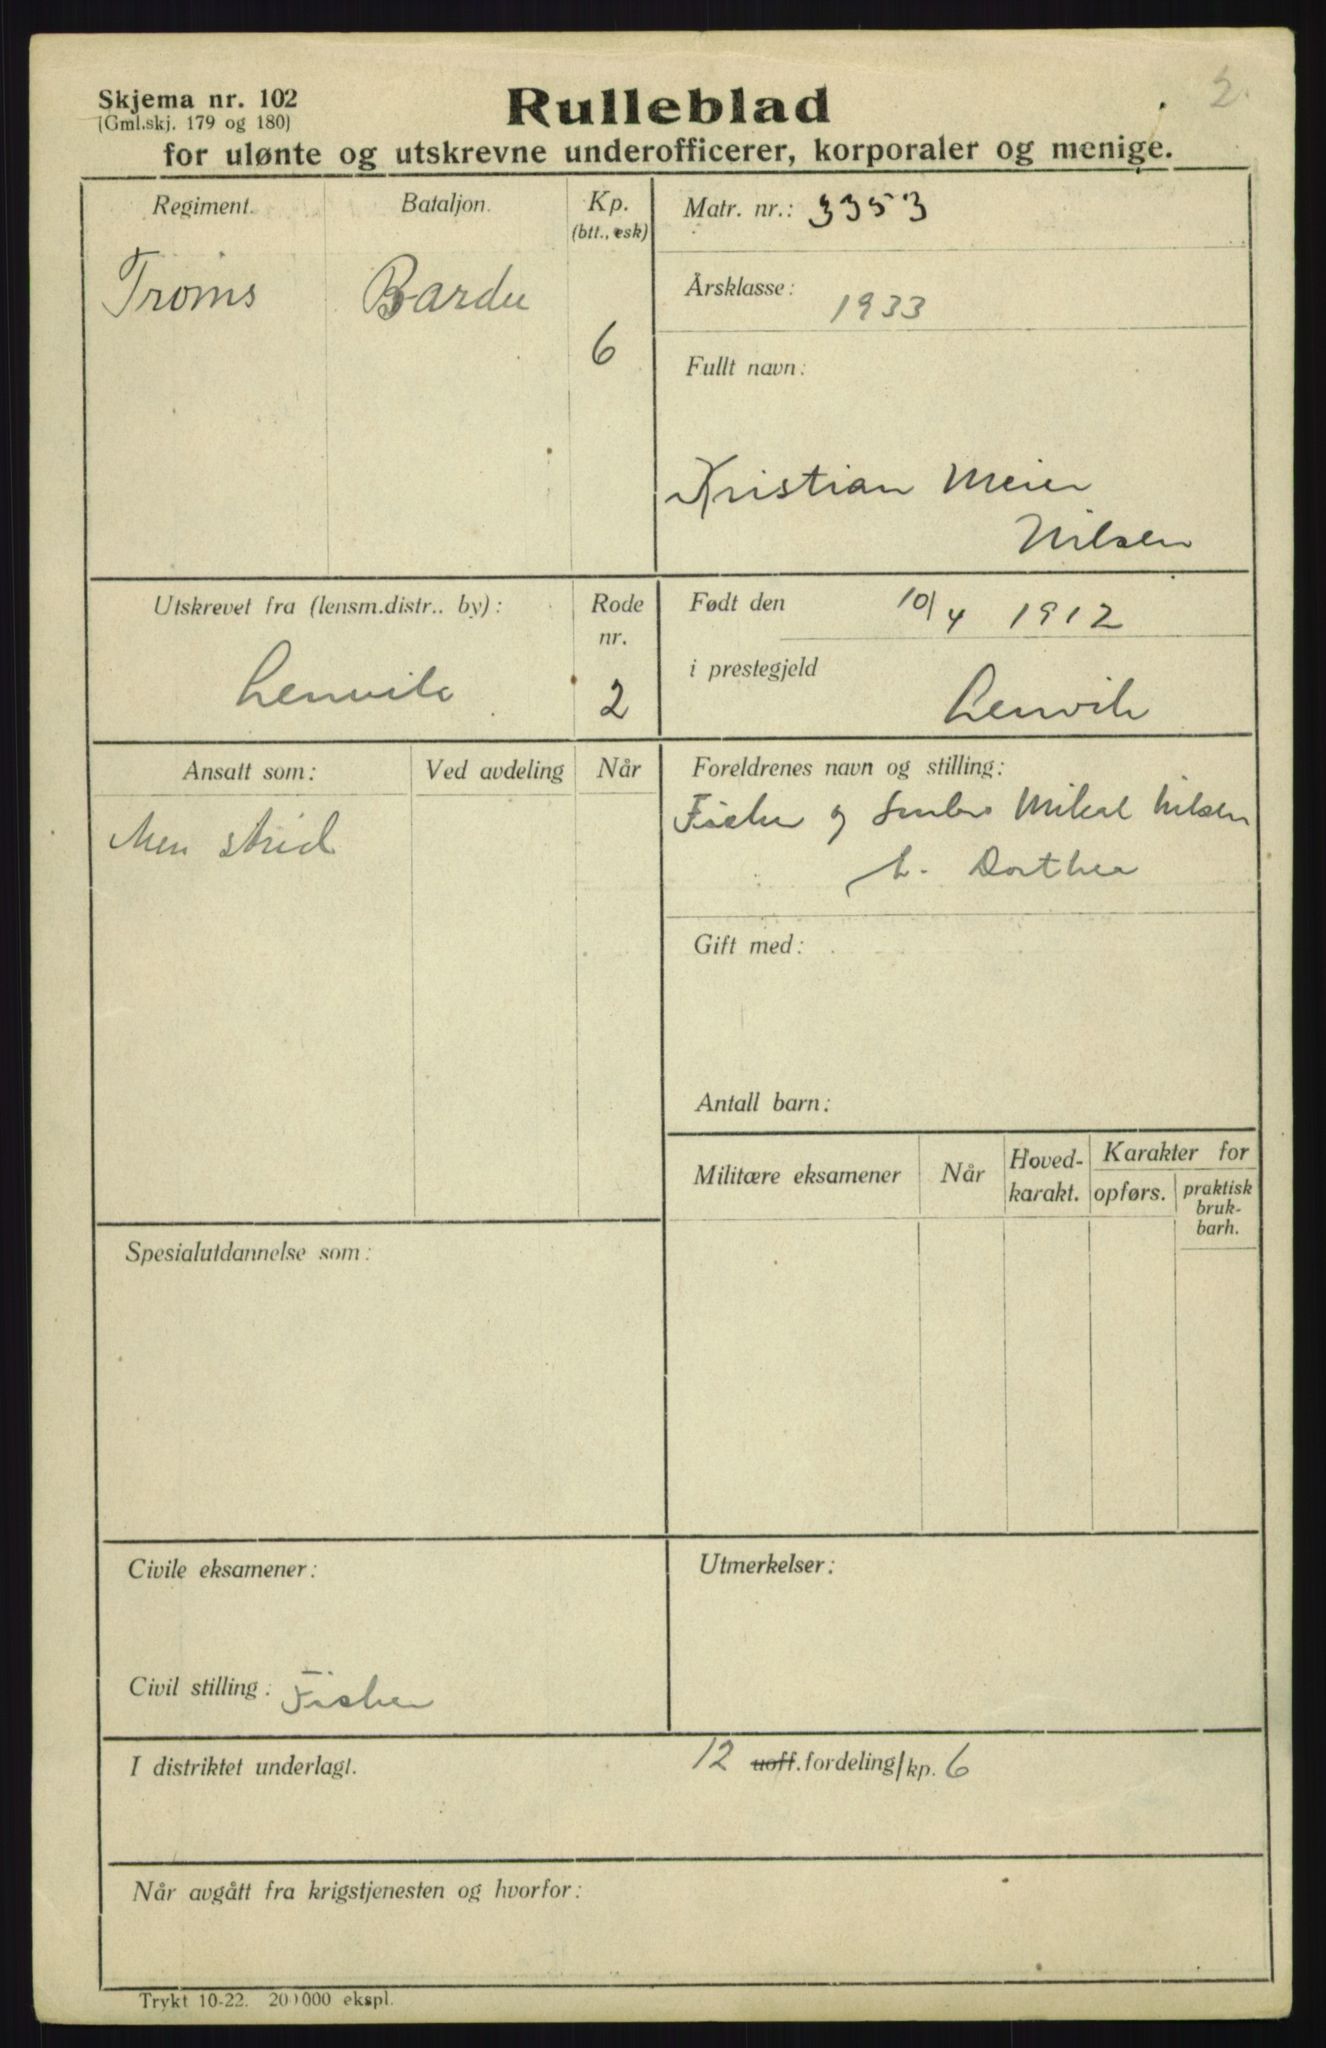 2.
Skjema nr. 102
(Gml.skj. 179 og 180)
Rulleblad
for ulønte og utskrevne underofficerer, korporaler og menige.
Regiment.
Bataljon.
Kp.
(btt., esk)
Troms
Bardu
6
Matr. nr.: 3353
Årsklasse: 1933
Fullt navn:
Kristian Meier
Nilsen
Utskrevet fra (lensm.distr.. by):
Lenvik
Rode
nr.
2
Født den 10/4 1912
i prestegjeld Lenvik
Ansatt som:
Ved avdeling
Når
Men strid
Foreldrenes navn og stilling:
Fisker og Mikal Nilsen
Dorthea
Gift med:
Antall barn:
Militære eksamener
Når
Hoved-
karakt.
Karakter for
opførs.
praktisk
bruk-
barh.
Spesialutdannelse som:
Civile eksamener:
Civil stilling: Fisker
Utmerkelser:
I distriktet underlagt. 12 uoff. fordeling/kp. 6
Når avgått fra krigstjenesten og hvorfor:
Trykt 10-22. 200000 ekspl.